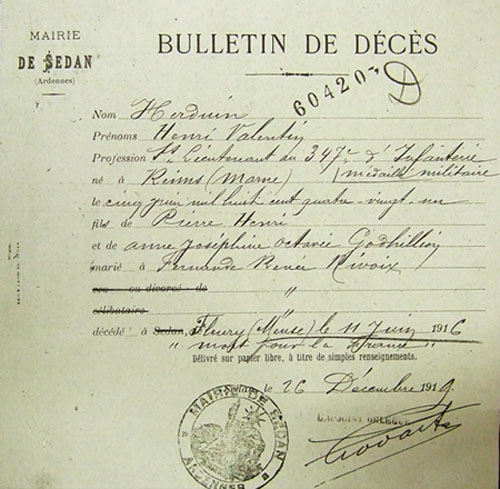 MAIRIE
DE SEDAN
(Ardennes)
BULLETIN DE DÉCÈS
60420 D
Nom Herduin
Prénoms Henri Valentin
Profession Ss Lieutenant au 347e d'Infanterie
né à Reims (Marne) médaille militaire
le cinq juin mil huit cent quatre-vingt-un
fils de Pierre Henri
et de Anne Joséphine Octavie
marié à Fernande Renée Nivoix
veu ou divorcé de "
célibataire "
décédé à Sedan, Fleury (Meuse) le 11 Juin 1916
" mort pour la France "
Délivré sur papier libre, à titre de simples renseignements.
Sedan, le 26 Décembre 1919
L'ADJOINT DÉLÉGUÉ
MAIRIE DE SEDAN
ARDENNES